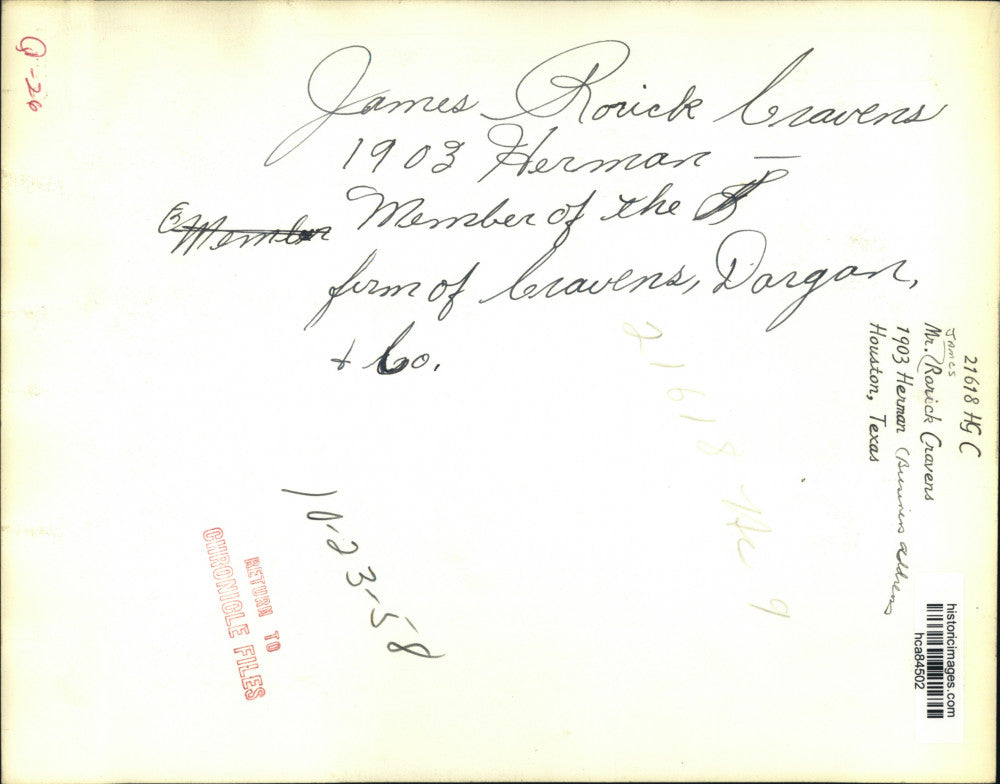 Q-26
James Rorick Cravens
1903 Herman —
Member Member of the
firm of Cravens, Dargan,
+ Co.
21618 HG C
James
Mr. Rorick Cravens
1903 Herman (Business address
Houston, Texas
21618 HC 9
10-23-58
RETURN TO
CHRONICLE FILES
historicimages.com
hca84502